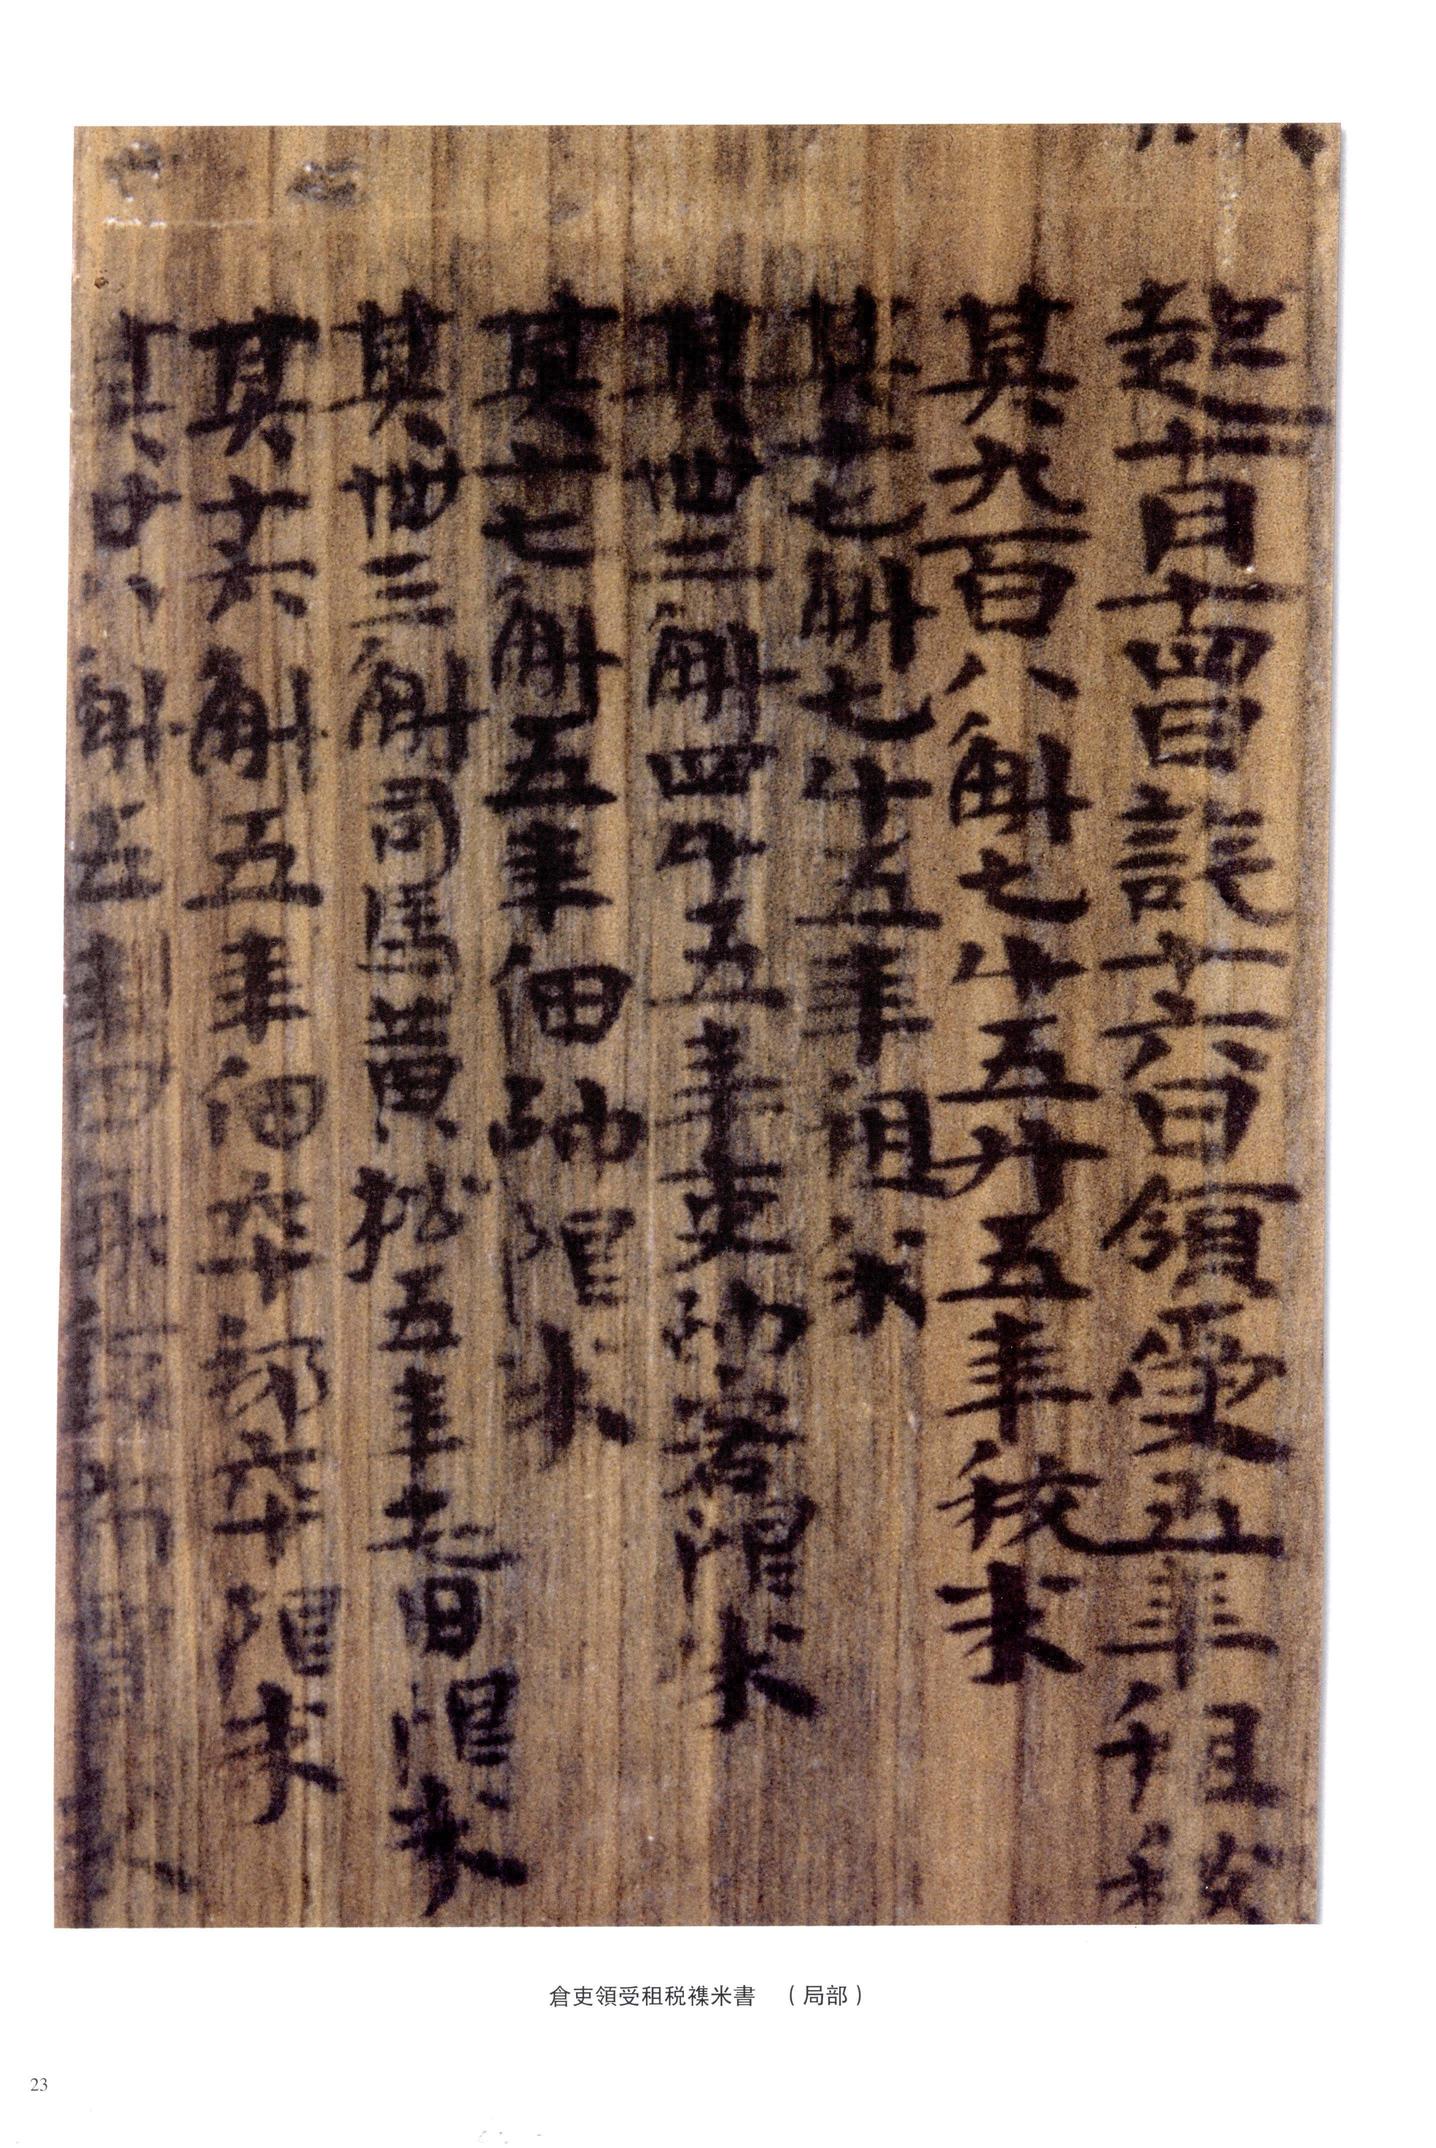 起十月十四日訖十六日領受五年租税
其九百八斛七斗五升五年税米
其十七斛七斗五年租米
其卌二斛四斗五年吏帥客限米
其十七斛五年佃帥限米
其卌三斛司馬黃五年限米
其十六斛五年佃卒卒限米
其廿八斛五年
倉吏領受租税襍米書 （局部）
23